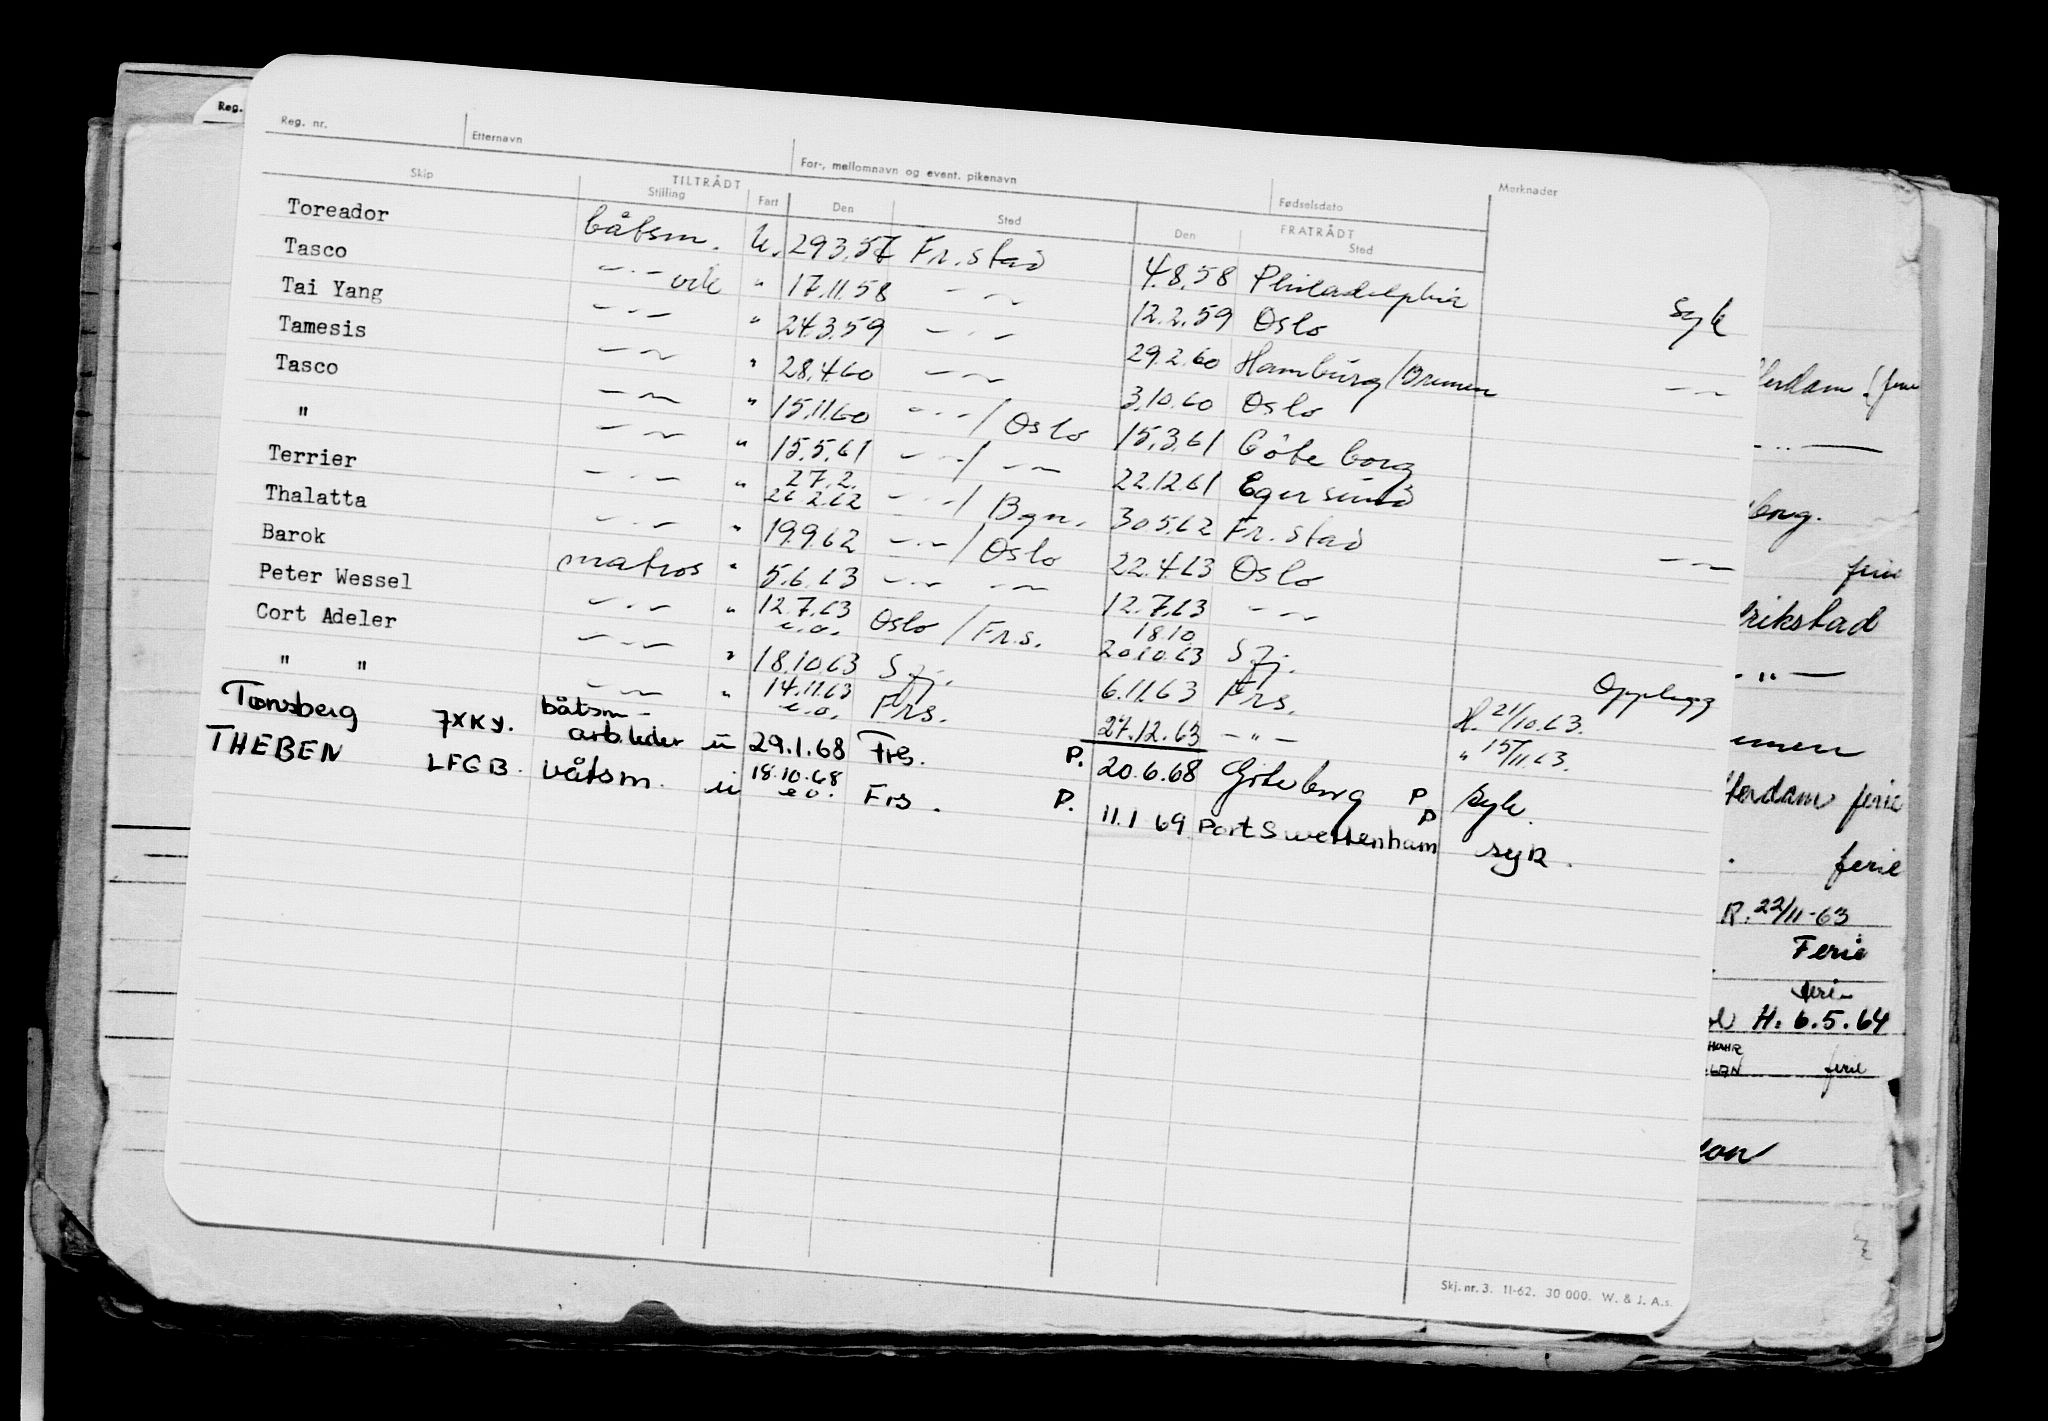 Reg.
Reg. nr. Etternavn For-, mellomnavn og event. pikenavn Fødselsdato Merknader
Skip TILTRÅDT Stilling Fart Den Sted FRATRÅDT Den Sted
Toreador båtsm. U. 29.3.57 Fr.stad 4.8.58 Philadelphia syk
Tasco —·— " 17.11.58 — ~ 12.2.59 Oslo
Tai Yang —·— " 24.3.59 —·— 29.2.60 Hamburg/Bremen — ~
Tamesis — ~ " 28.4.60 — ~ 3.10.60 Oslo
Tasco — ~ " 15.11.60 —·—/Oslo 15.3.61 Göteborg
" — ~ " 15.5.61 —·—/— ~ 22.12.61 Egersund
Terrier —·— " 27.2. 26.2.62 —·—/Bgn. 30.5.62 Fr.stad — ~
Thalatta —·— " 19.9.62 —·—/Oslo 22.4.63 Oslo
Barok matros " 5.6.63 —·— — ~ 12.7.63 — ~
Peter Wessel —·— " 12.7.63 e.o. Oslo/Fr.s. 18.10 20.10.63 Sfj. Opplagg
Cort Adeler —·— " 18.10.63 Sfj. 6.11.63 Frs. H. 21/10.63.
" " — ~ " 14.11.63 e.o. Frs. 27.12.63 —"— " 15/11.63.
Tønsberg JXKY. båtsm- arb.leder u 29.1.68 Frs. P. 20.6.68 Göteborg P syk.
THEBEN LFGB. båtsm. u 18.10.68 e.o. Frs. P. 11.1 69 Port Swettenham P syk.
Skj. nr. 3. 11-62. 30 000. W. & J. A.s.
ferie
rikstad
ferie
ferie
R. 22/11-63
Ferie
H. 6.5.64
ferie